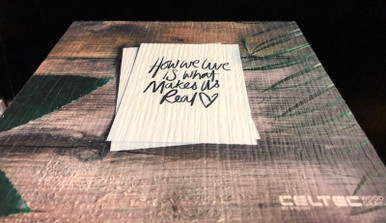 How we live
Is what
Makes Us
Real
CELTEC